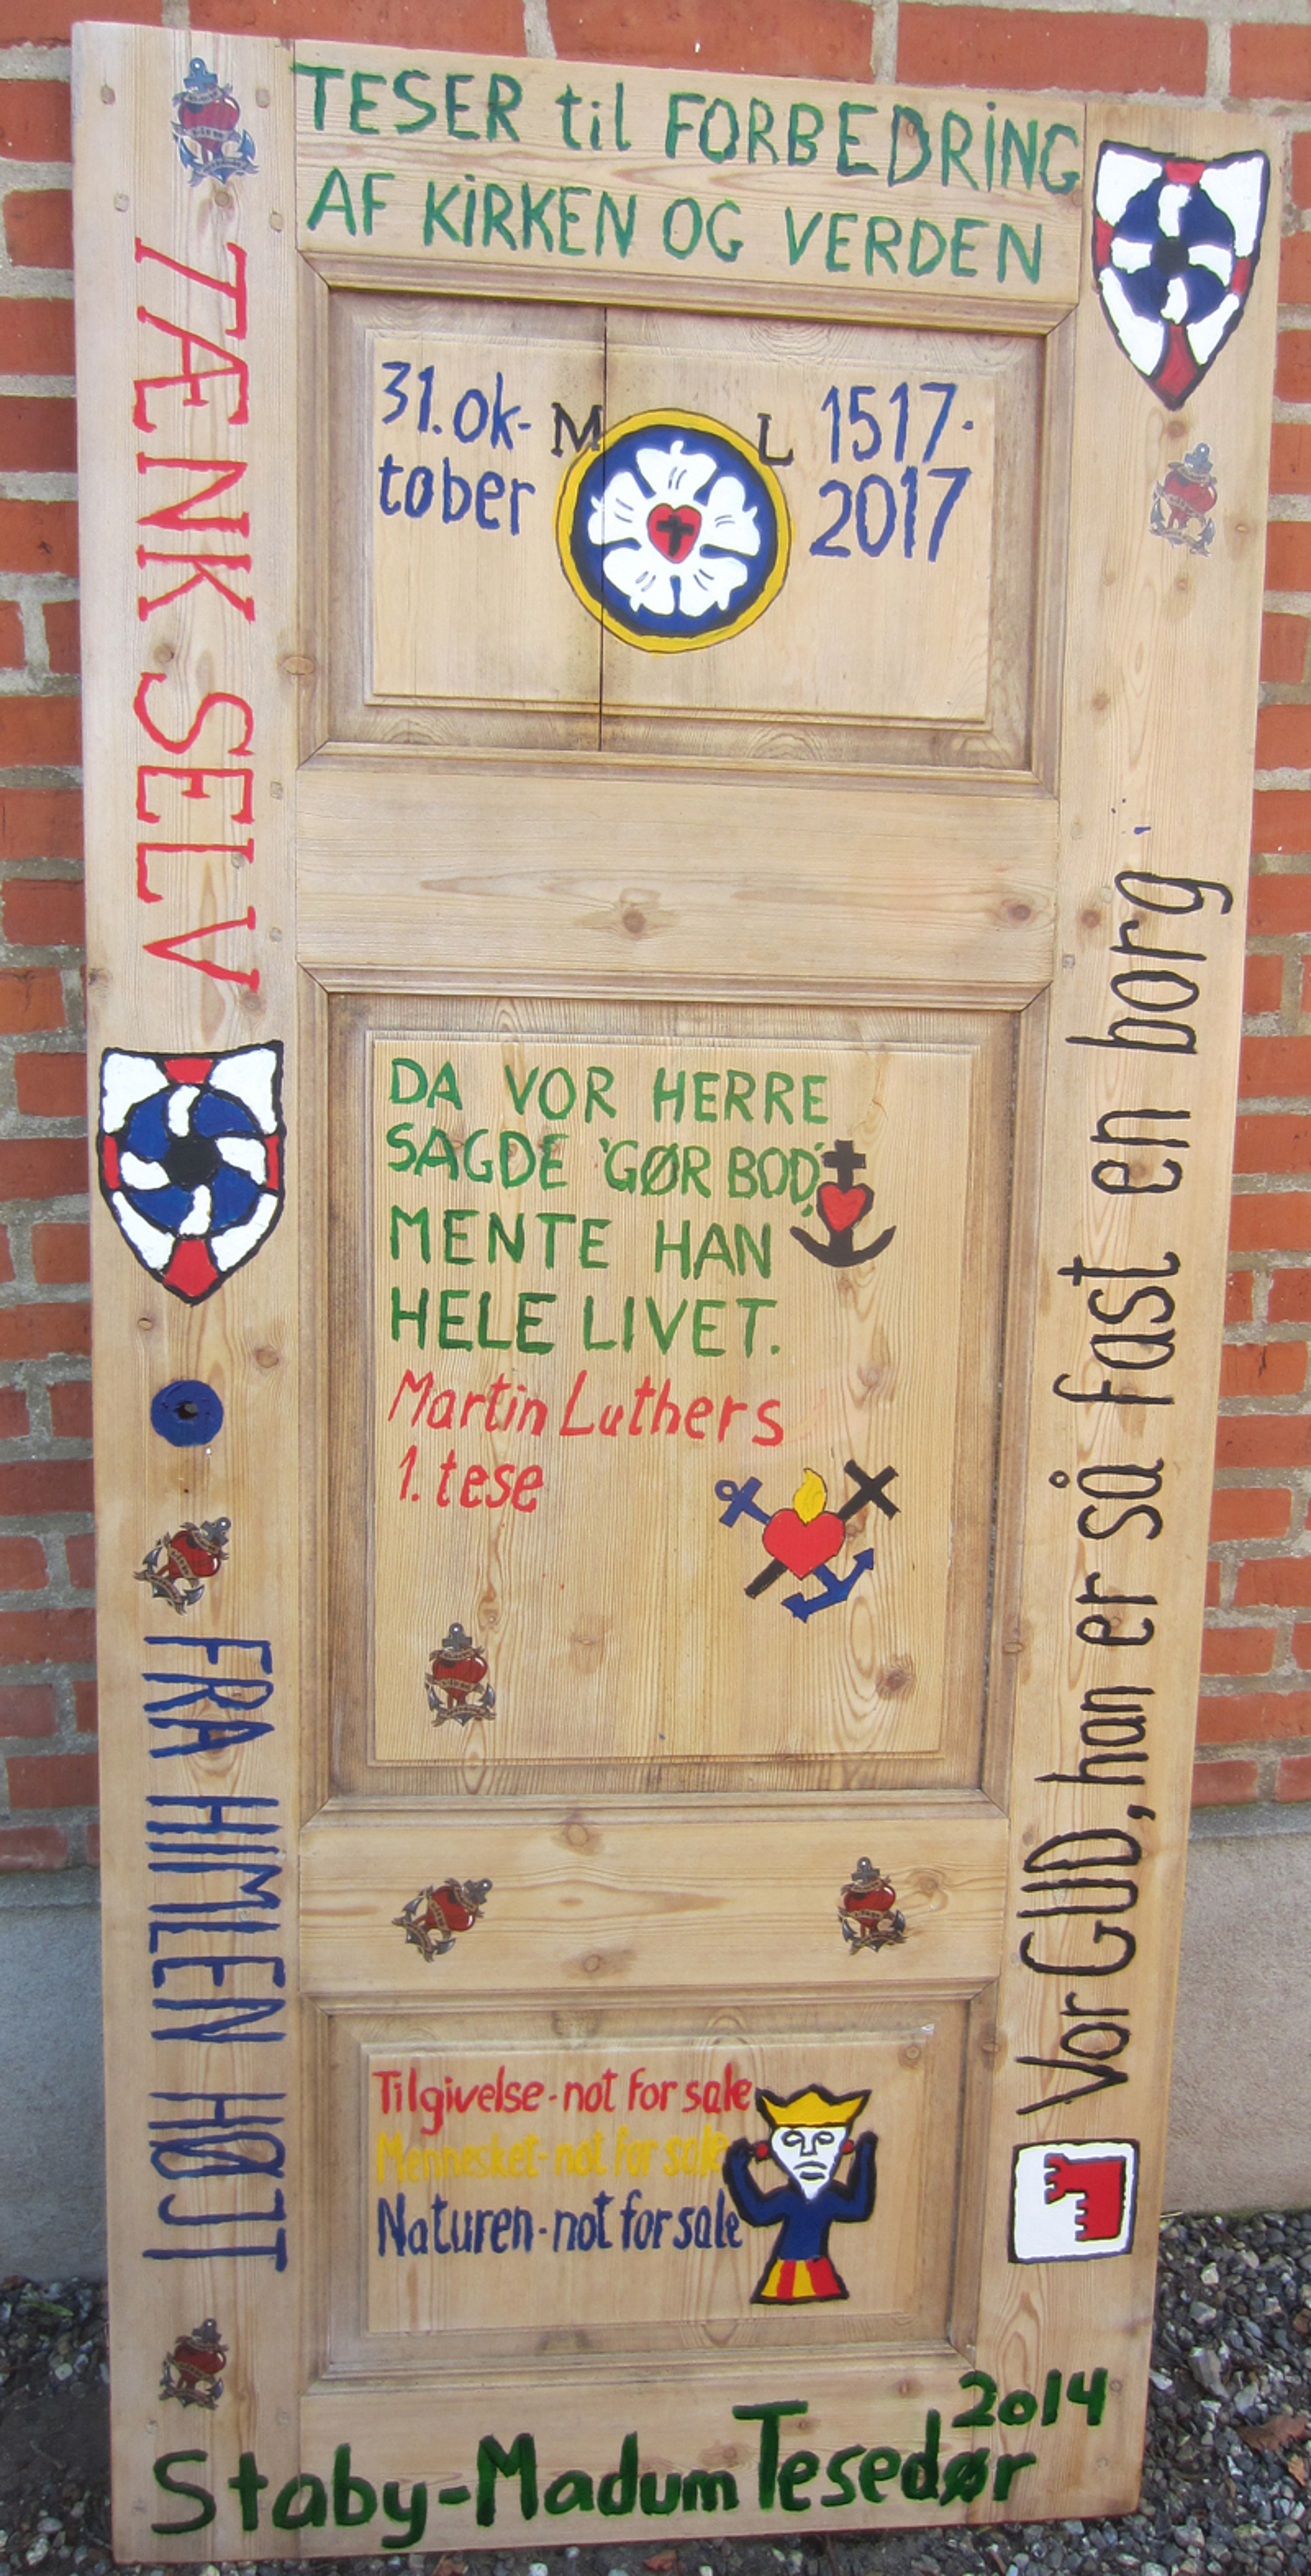 TESER til FORBEDRING
AF KIRKEN OG VERDEN
TÆNK SELV
31. ok-
tober
M L
1517-
2017
DA VOR HERRE
SAGDE 'GØR BOD',
MENTE HAN
HELE LIVET.
Martin Luthers
1. tese
FRA HIMLEN HØJT
Vor GUD, han er så fast en borg
Tilgivelse-not for sale
Mennesket-not for sale
Naturen-not for sale
Staby-Madum Tesedør 2014